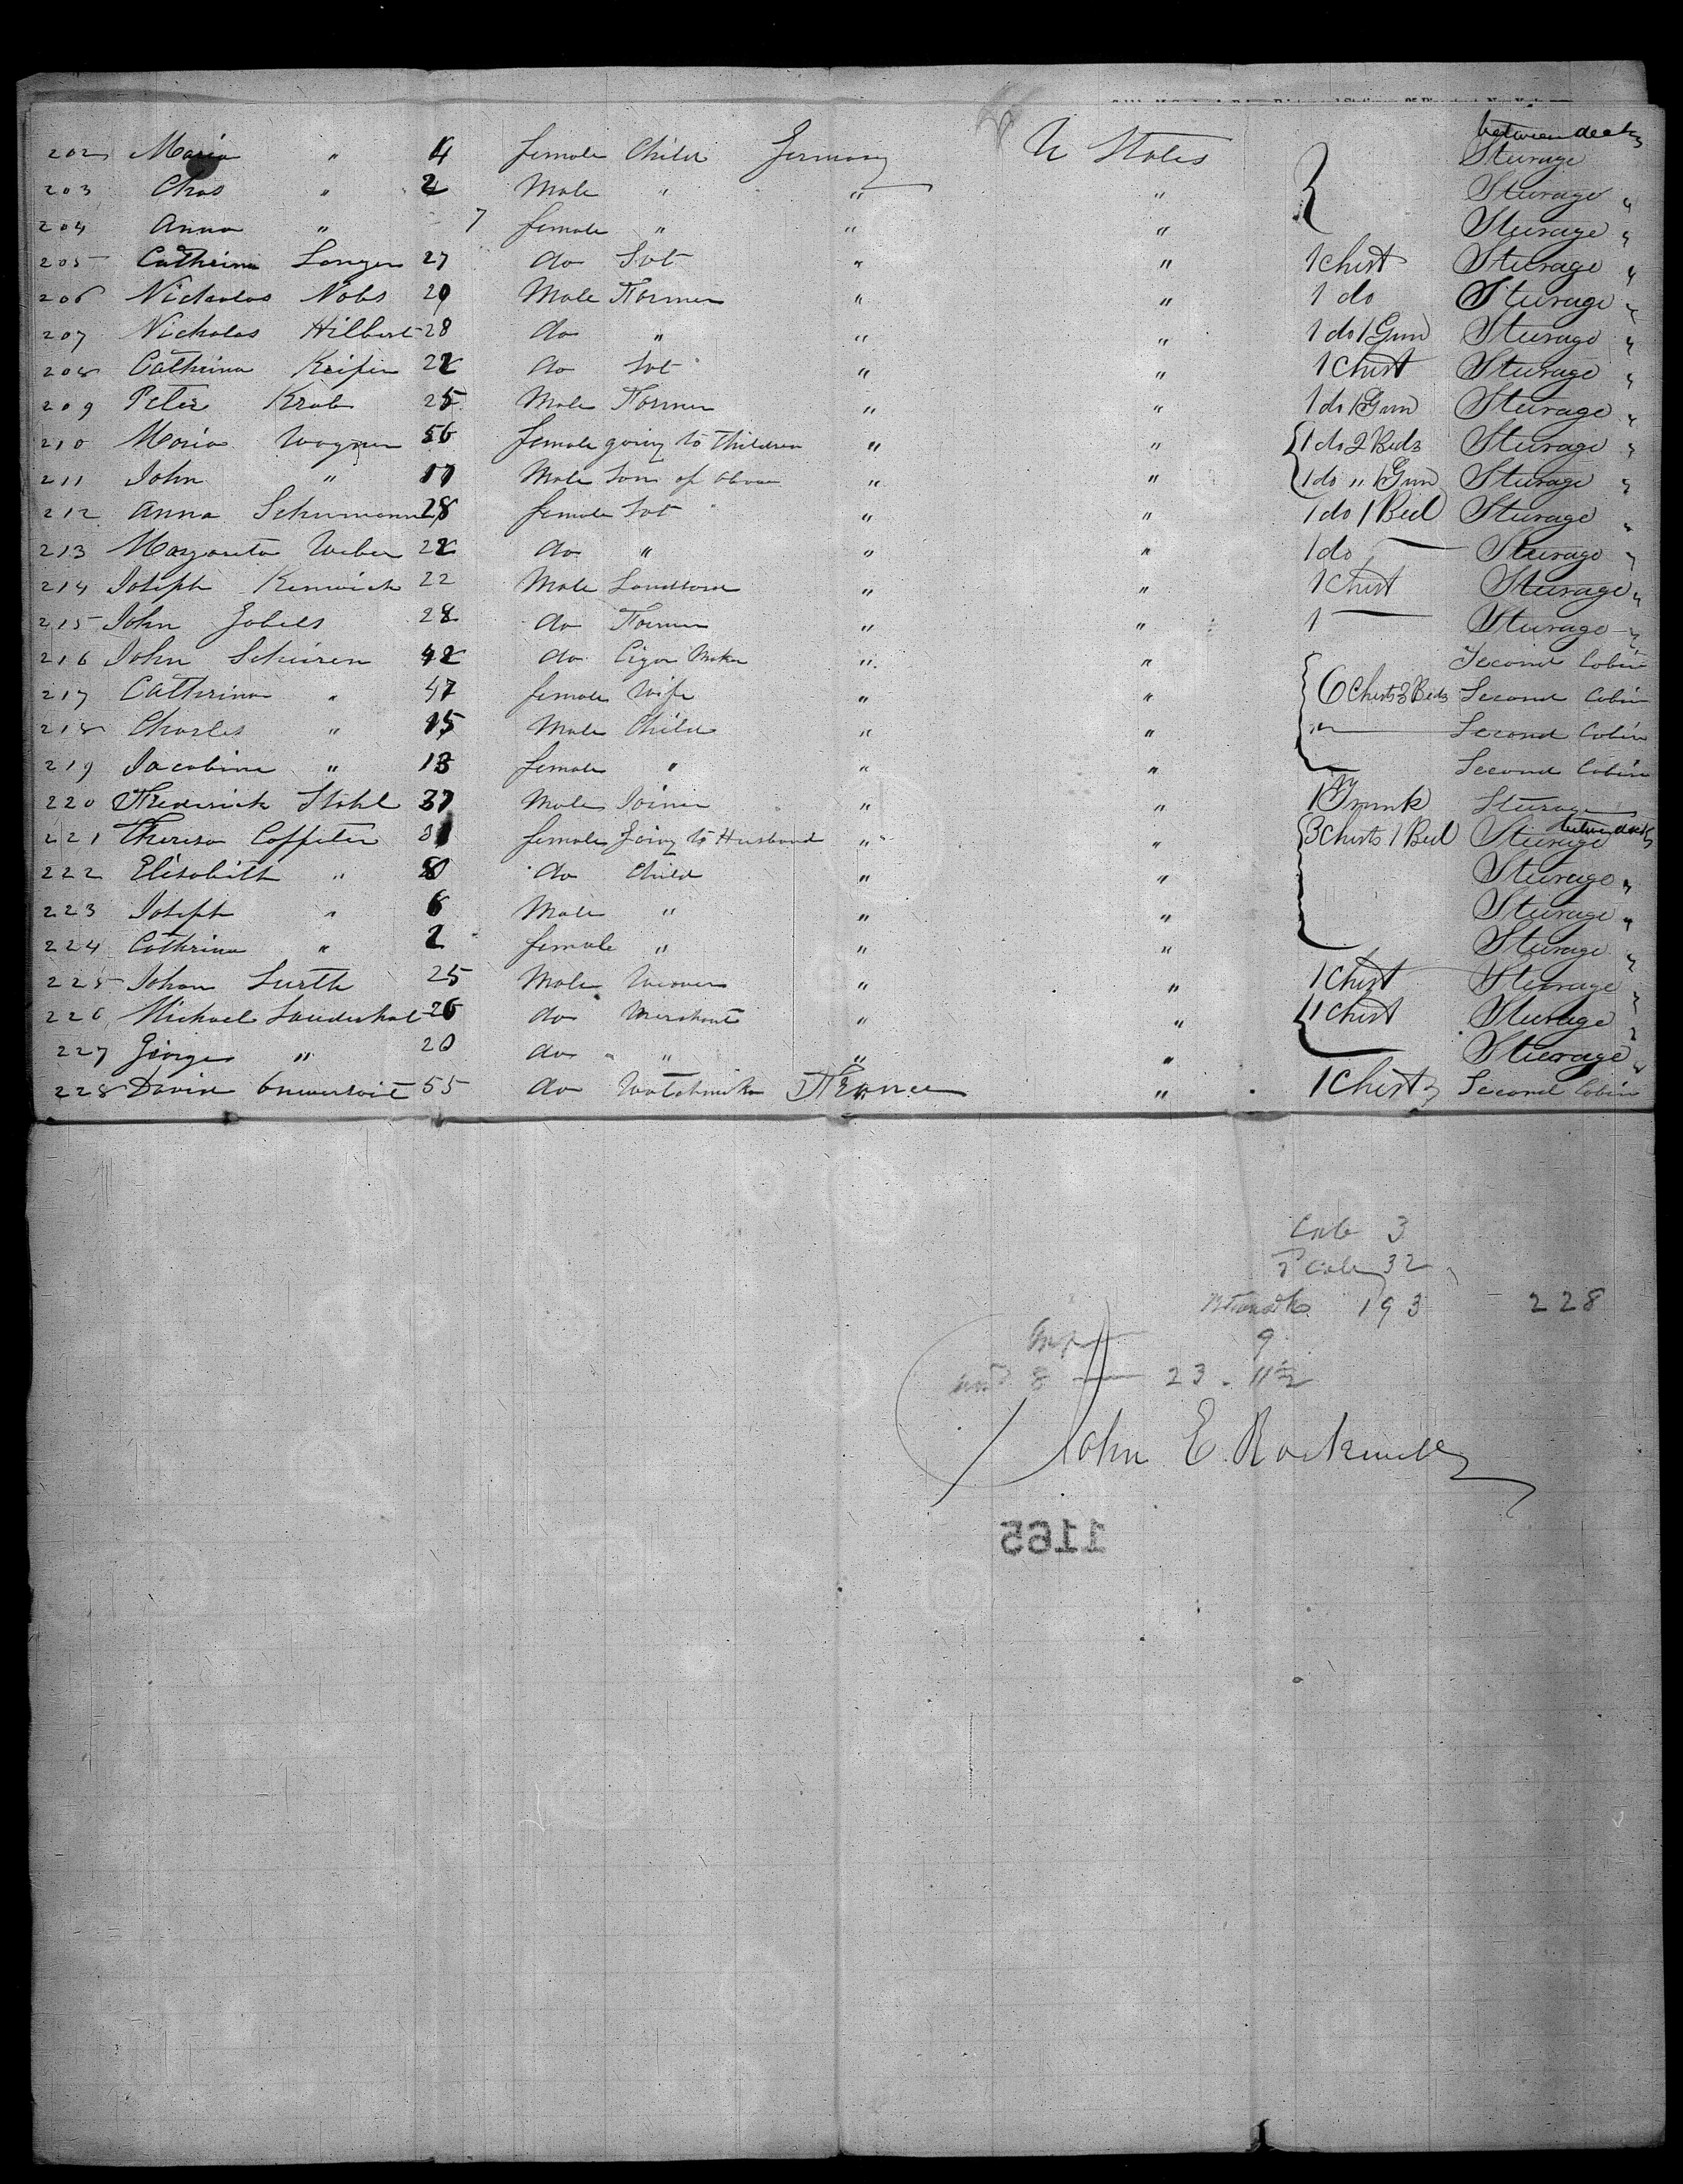 between decks
202 Maria " 4 female Child Germany U States Sturage
203 Chas " 2 Male " " " Sturage "
204 Anna " 7 female " " " Sturage "
205 Cathrina Langer 27 do Svt " " 1 Chest Sturage "
206 Nickolas Nobs 29 Male Farmer " " 1 do Sturage "
207 Nickolas Hilbert 28 do " " " 1 do 1 Gun Sturage "
208 Cathrina Keifer 22 do Svt " " 1 Chest Sturage "
209 Peter Krab 25 Male Farmer " " 1 do 1 Gun Sturage "
210 Maria Wagner 56 female going to Children " " 1 do 2 Beds Sturage "
211 John " 17 Male Son of above " " 1 do " 1 Gun Sturage "
212 Anna Schumann 28 female Svt " " 1 do 1 Bed Sturage "
213 Margareta Weber 22 do " " " 1 do Sturage "
214 Joseph Kenwick 22 Male Landlord " " 1 Chest Sturage "
215 John Jobels 28 do Farmer " " 1 Sturage "
216 John Schiren 42 do Cigar Maker " " Second Cabin
217 Cathrina " 47 female Wife " " 6 Chests 3 Beds Second Cabin
218 Charles " 15 Male Child " " " Second Cabin
219 Jacobine " 13 female " " " Second Cabin
220 Frederick Stohl 37 Male Joiner " " 1 Trunk Sturage
221 Theresa Coffeter 31 female Going to Husband " " 3 Chests 1 Bed Sturage between decks
222 Elisabith " 8 do Child " " Sturage "
223 Joseph " 6 Male " " " Sturage "
224 Cathrina " 2 female " " " Sturage "
225 Johan Surth 25 Male Weaver " " 1 Chest Sturage "
226 Michael 26 do Merchant " " 1 Chest Sturage "
227 George " 20 do " " " Sturage "
228 David 55 do Watchmaker France " 1 Chest Second Cabin
Cab 3
2 Cab 32
193 228
9
8 23 - 11
John E. Rockwell
1165